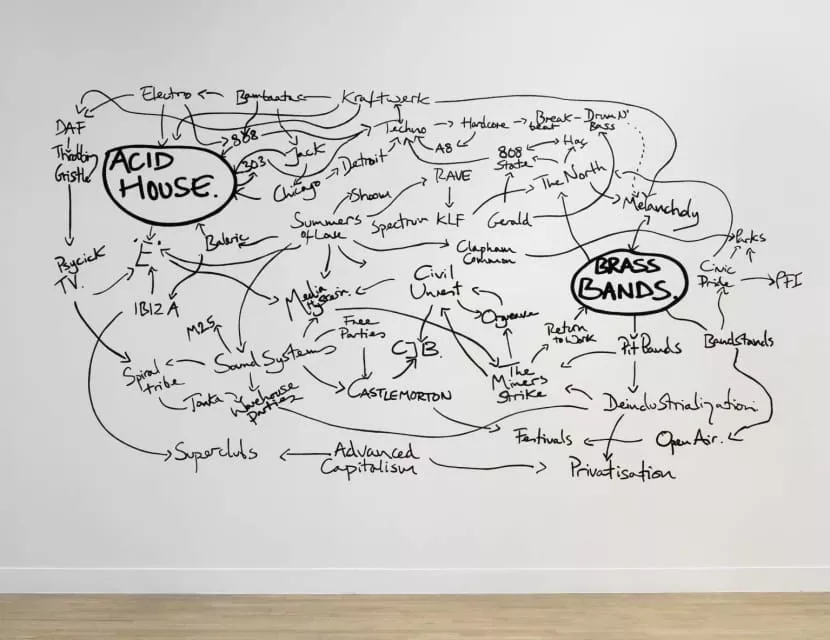 Electro
Bambaataa
Kraftwerk
DAF
808
Techno
Hardcore
Break-
beat
Drum N'
Bass
Throbbing
Gristle
ACID
HOUSE.
303
Jack
Detroit
A8
808
State
Hac
Chicago
Shoom
RAVE
The North
Melancholy
Summers
of Love
Spectrum
KLF
Gerald
Balaric
Clapham
Common
Parks
Psychick
TV.
'E'.
Media
Hysteria.
Civil
Unrest
BRASS
BANDS.
Civic
Pride
PFI
IBIZA
M25
Free
Parties
Orgreave
Return
to Work
C.J.B.
Pit Bands
Bandstands
Spiral
tribe
Sound Systems
The
Miners
Strike
Tonka
Warehouse
Parties
CASTLEMORTON
Deindustrialization
Festivals
Open Air.
Superclubs
Advanced
Capitalism
Privatisation